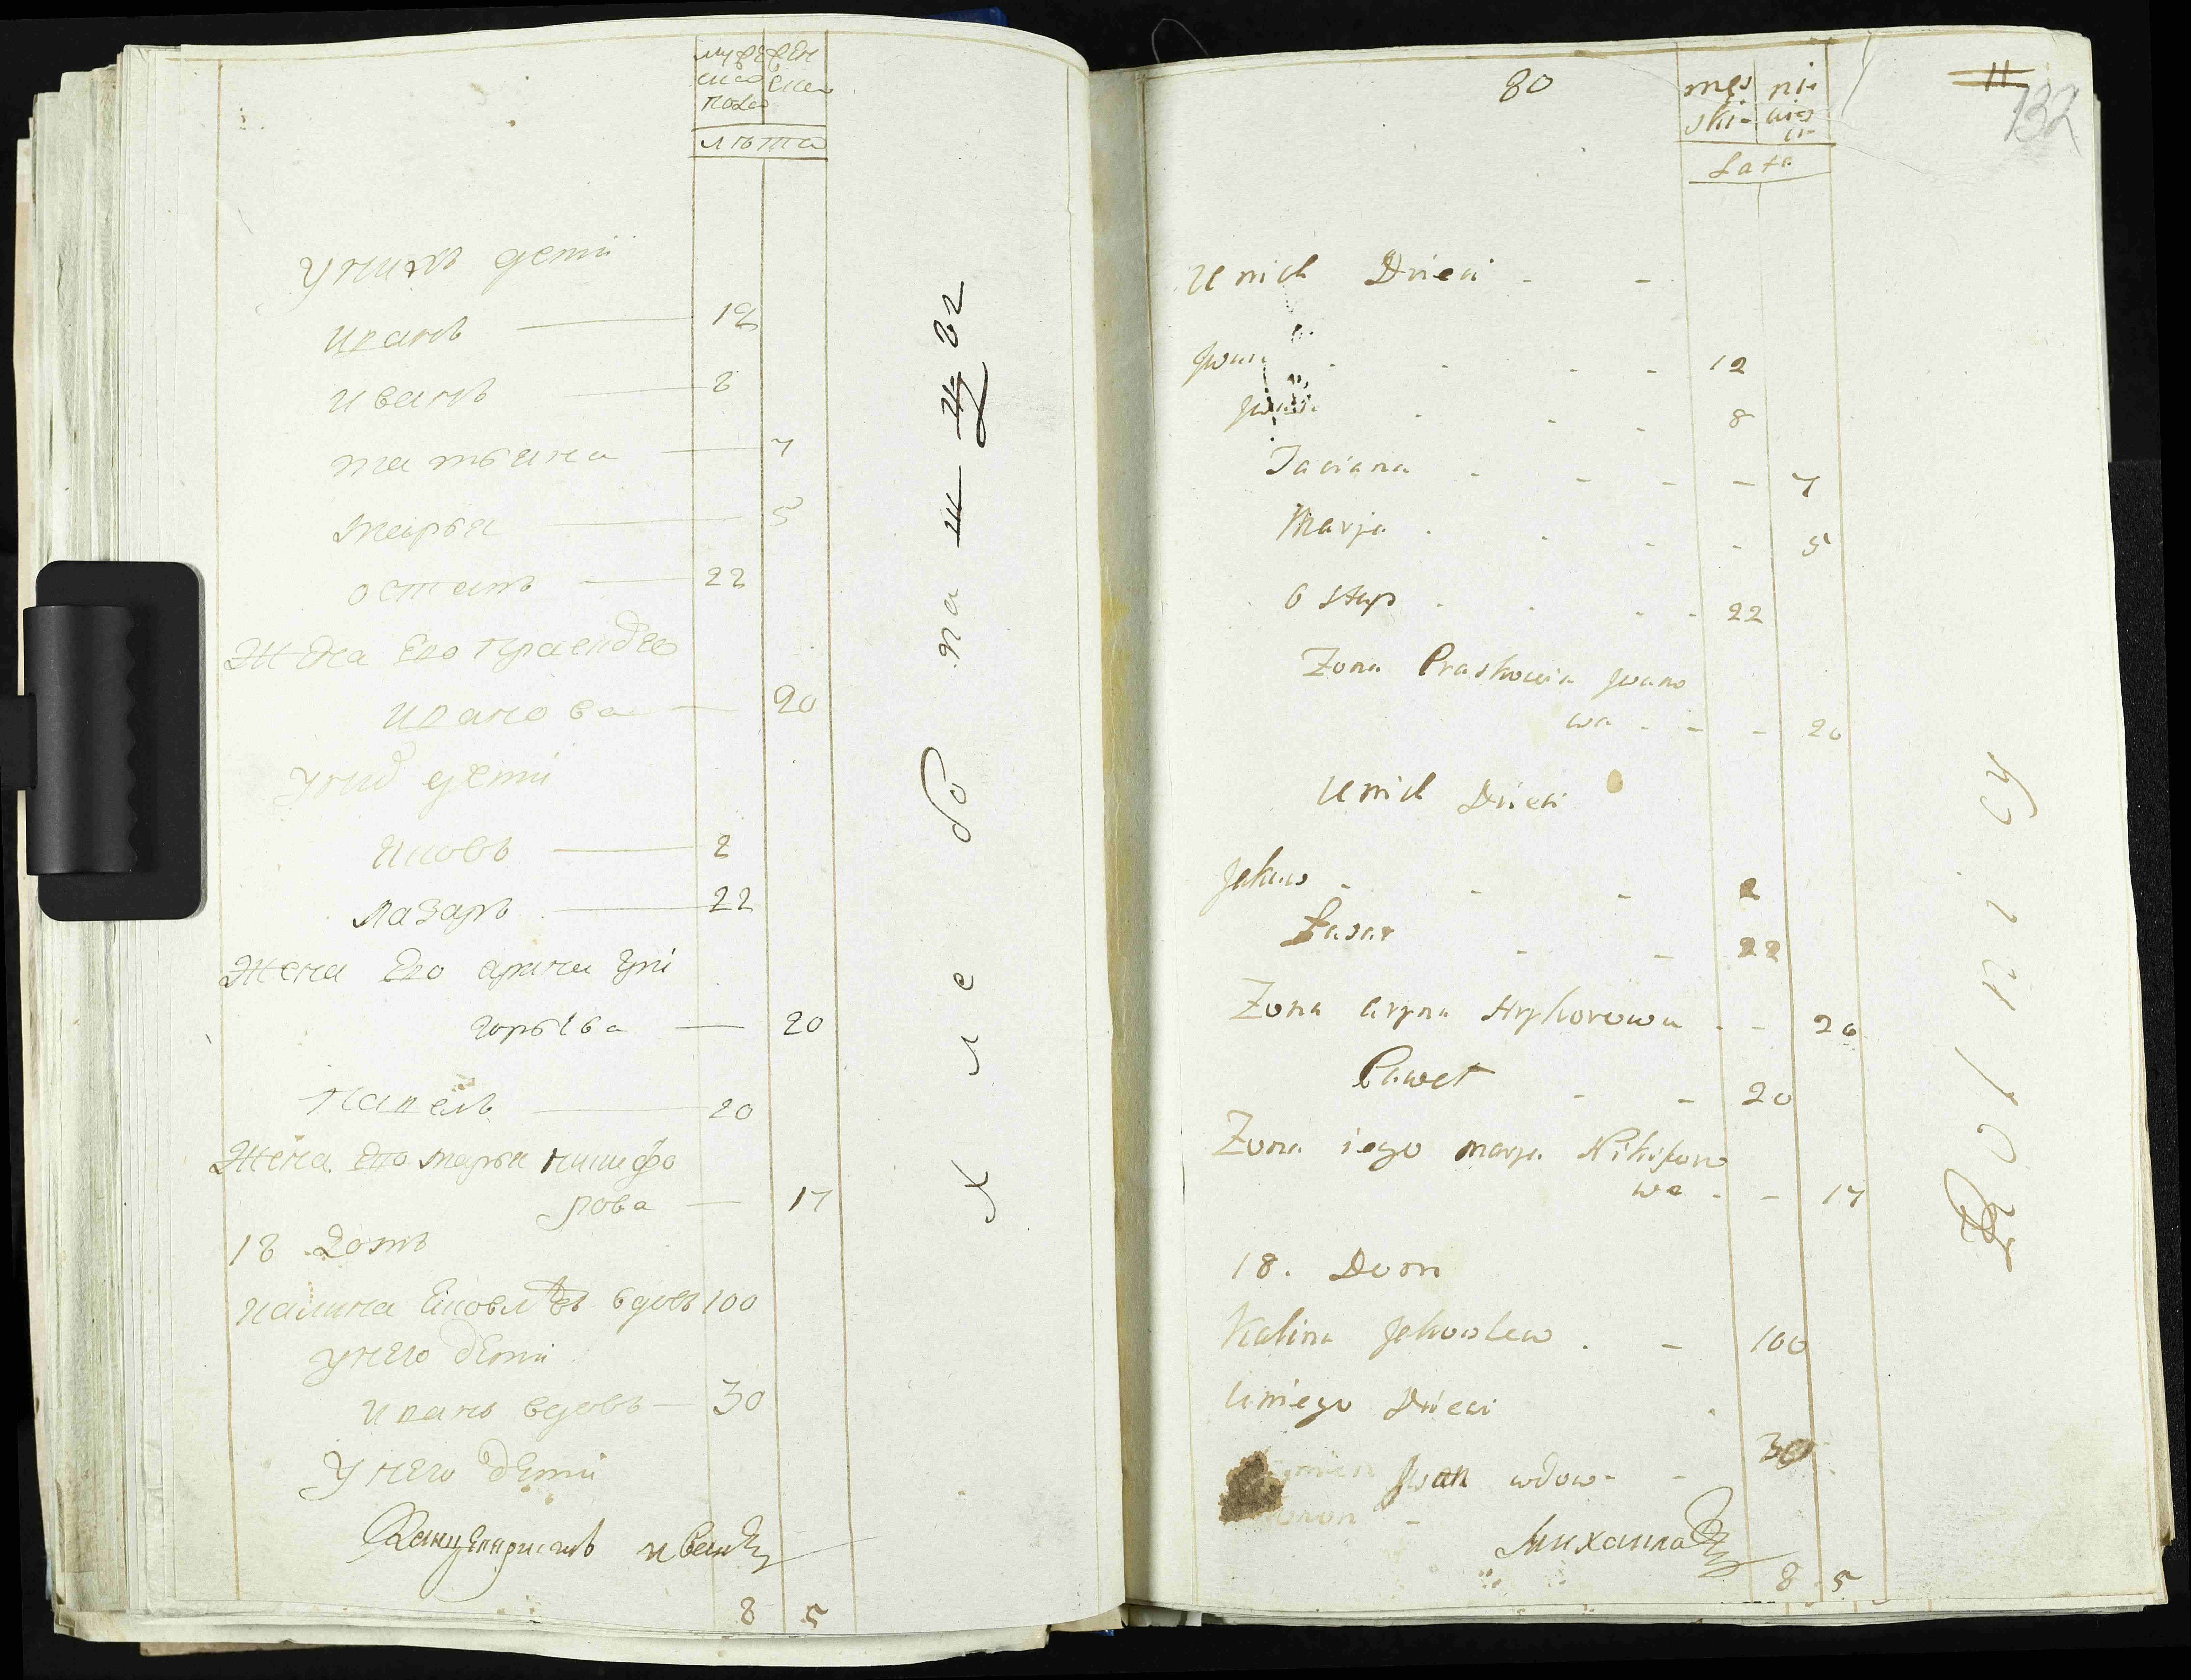 муже жен
ска ска
пола
лѣта
У нихъ дети
иванъ 12
иванъ 8
татьяна 7
марья 5
остапъ 22
Жена Его Праскове
иванова 20
У них дети
Яковъ 2
лазаръ 22
Жена Его арина Гри
горьева 20
Павелъ 20
Жена Его марья никифо
рова 17
18 домъ
калина Яковлевъ вдовъ 100
У него дети
иванъ вдовъ 30
У него дети
8 5
хлебопа
80
męs nie
skie wies
cie
Lata
11
132
U nich Dzieci
Jwan 12
Jwan 8
Taciana 7
Marja 5
Ostap 22
Zona Praskowia Jwano
wa 20
U nich Dzieci
Jakow 2
Łasar 22
Zona aryna Hryhorowa 20
Paweł 20
Zona iego marja Nikiforo
wa 17
18. Dom
Kalina Jakowlew 100
U niego Dzieci
Jwan wdow 30
Михаила
8 5
Rolnicy